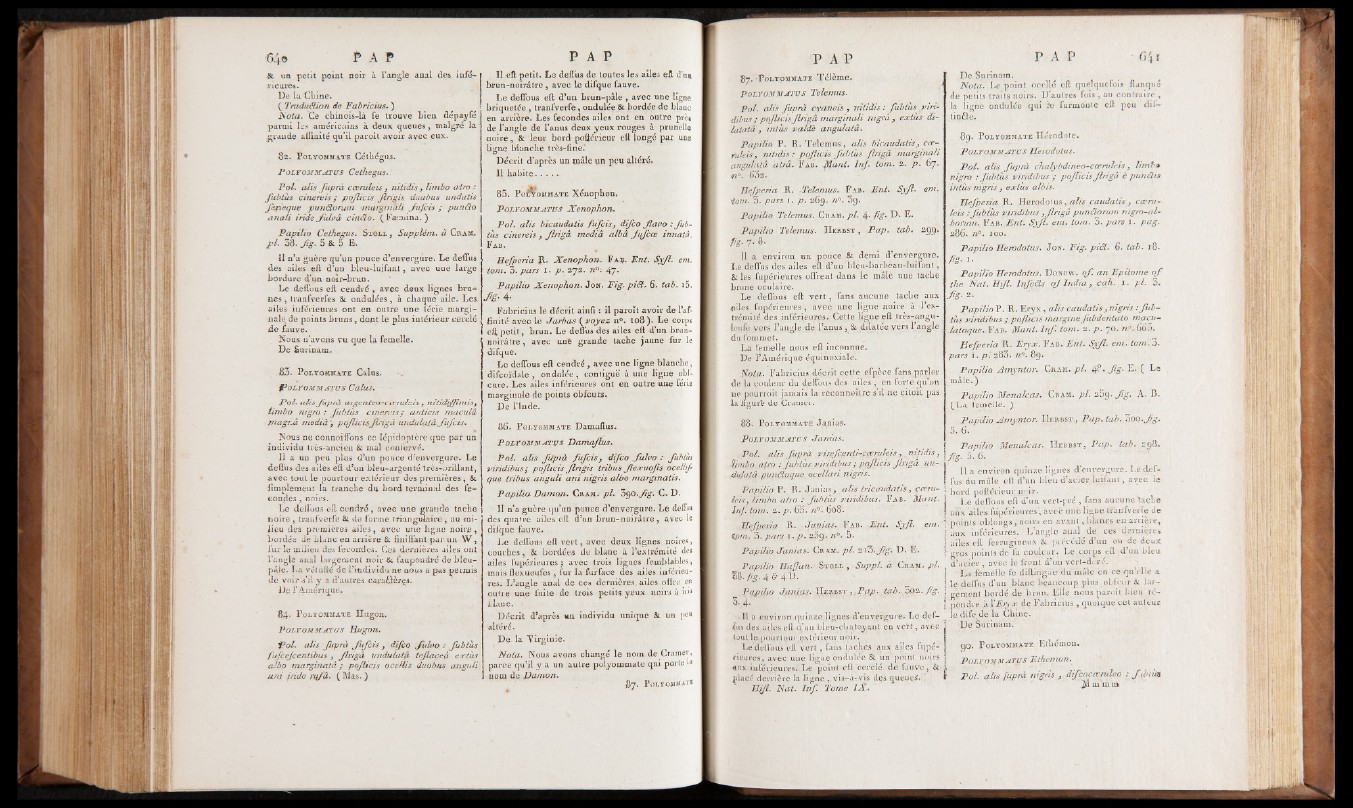 640 PAP
& un petit point noir à l'angle anal des infé-
rieures.
De la Chine.
( Traduction de Fabricius. )
Nota. Ce chinois-là se trouve bien dépaysé
parmi les américains à deux queues, malgré la
grande affinité qu'il paroît avoir avec eux.
82. POLYOMMATE Céthégus.
POLYOMMATUS Cethegus.
Pol. alis suprà cœruleis, nitidis, limbo atro :
subtùs cinereis ; posticis strigis duabus undatis
serieque punctorum marginali fuscis ; puncto
anali iride fulvâ cincto. ( Fœmina. )
Papilio Cethegus. STOLL, Supplém. à CRAM.
pl. 38. fig. 5 & 5 E.
Il n'a guère qu'un pouce d'envergure. Le dessus
des ailes est d'un bleu-luisant, avec une large
bordure d'un noir-brun.
Le dessous est cendré, avec deux lignes bru-
nes, transverses & ondulées, à chaque aile. Les
ailes inférieures ont en outre une série margi-
nale de points bruns, dont le plus intérieur cerclé
de fauve.
Nous n'avons vu que la femelle.
De Surinam.
83. POLYOMMATE Calus.
POLYOMMATUS Calus.
Pol. alis suprà argenteo-cœruleis, nitidissimis,
limbo nigro : subtùs cinereis ; anticis maculâ
magnâ mediâ, posticis strigâ undulatâ fuscis.
Nous ne connoissons ce lépidoptère que par un
individu très-ancien & mal conservé.
Il a un peu plus d'un pouce d'envergure. Le
dessus des ailes est d'un bleu-argenté très-brillant,
avec tout le pourtour extérieur des premières, &
simplement la tranche du bord terminal des se-
condes, noirs.
Le dessous est cendré, avec une grande tache
noire, transverse & de forme triangulaire, au mi-
lieu des premières ailes, avec une ligne noire,
bordée de blanc en arrière & finissant par un W,
sur le milieu des secondes. Ces dernières ailes ont
l'angle anal largement noir & saupoudré de bleu-
pâle. La vétusté de l'individu ne nous a pas permis
de voir s'il y a d'autres caractères.
De l'Amérique.
84. POLYOMMATE Hugon.
POLYOMMATUS Hugon.
Pol. alis suprà fuscis, disco fulvo : subtùs
fuscescentibus, strigâ undulatâ testaceâ extùs
albo marginatâ ; posticis ocellis duobus anguli
ani indo rufâ. ( Mas. )
PAP
Il est petit. Le dessus de toutes les ailes est d'un
brun-noirâtre, avec le disque fauve.
Le dessous est d'un brun-pâle, avec une ligne
briquetée, transverse, ondulée & bordée de blanc
en arrière. Les secondes ailes ont en outre près
de l'angle de l'anus deux yeux rouges à prunelle
noire, & leur bord postérieur est longé par une
ligne blanche très-fine.
Décrit d'après un mâle un peu altéré.
Il habite.....
85. POLYOMMATE Xénophon.
POLYOMMATUS Xenophon.
Pol. alis bicaudatis fuscis, disco flavo : sub-
tùs cinereis, strigâ mediâ albâ fusco innatâ.
FAB.
Hesperia R. Xenophon. FAB. Ent. Syst. em.
tom. 3. pars 1. p. 272. n°. 47.
Papilio Xenophon. JON. Fig. pict. 6. tab. 15.
fig. 4.
Fabricius le décrit ainsi : il paroît avoir de l'af-
finité avec le Jarbas ( voyez n°. 108 ). Le corps
est petit, brun. Le dessus des ailes est d'un brun-
noirâtre, avec une grande tache jaune sur le
disque.
Le dessous est cendré, avec une ligne blanche,
discoïdale, ondulée, contiguë à une ligne obs-
cure. Les ailes inférieures ont en outre une série
marginale de points obscurs.
De l'Inde.
86. POLYOMMATE Damastus.
POLYOMMATUS Damastus.
Pol. alis suprà fuscis, disco fulvo : subtùs
viridibus ; posticis strigis tribus flexuosis ocellis-
que tribus anguli ani nigris albo marginatis.
Papilio Damon. CRAM. pl. 390. fig. C. D.
Il n'a guère qu'un pouce d'envergure. Le dessus
des quatre ailes est d'un brun-noirâtre, avec le
disque fauve.
Le dessous est vert, avec deux lignes noires,
courbes, & bordées de blanc à l'extrémité des
ailes supérieures ; avec trois lignes semblables,
mais flexueuses, sur la surface des ailes inférieu-
res. L'angle anal de ces dernières ailes offre en
outre une suite de trois petits yeux noirs à iris
blanc.
Décrit d'après un individu unique & un peu
altéré.
De la Virginie.
Nota. Nous avons changé le nom de Cramer,
parce qu'il y a un autre polyommate qui porte le
nom de Damon.
87. POLYOMMATE
PAP
87. POLYOMMATE Télème.
POLYOMMATUS Telemus.
Pol. alis suprà cyaneis, nitidis : subtùs viri-
dibus ; posticis strigâ marginali nigrâ, extùs di-
latatâ, intùs valdè angulatâ.
Papilio P. R. Telemus, alis bicaudatis, cœ-
ruleis, nitidis : posticis subtùs strigâ marginali
angulatâ atrâ. FAB. Mant. Inf. tom. 2. p. 67.
n°. 632.
Hesperia R. Telemus. FAB. Ent. Syst. em.
tom. 3. pars 1. p. 269. n°. 39.
Papilio Telemus. CRAM. pl. 4. fig. D. E.
Papilio Telemus. HERBST, Pap. tab. 299.
fig. 7. 8.
Il a environ un pouce & demi d'envergure.
Le dessus des ailes est d'un bleu-barbeau-luisant,
& les supérieures offrent dans le mâle une tache
brune oculaire.
Le dessous est vert, sans aucune tache aux
ailes supérieures, avec une ligne noire à l'ex-
trémité des inférieures. Cette ligne est très-angu-
leuse vers l'angle de l'anus, & dilatée vers l'angle
du sommet.
La femelle nous est inconnue.
De l'Amérique équinoxiale.
Nota. Fabricius décrit cette espèce sans parler
de la couleur du dessous des ailes, en sorte qu'on
ne pourroit jamais la reconnoître s'il ne citoit pas
la figure de Cramer.
88. POLYOMMATE Janias.
POLYOMMATUS Janias.
Pol. alis suprà virescenti-cœruleis, nitidis,
limbo atro : subtùs viridibus ; posticis strigâ un-
dulatâ punctoque ocellari nigris.
Papilio P. R. Janias, alis tricaudatis, cœru-
leis, limbo atro : subtùs viridibus. FAB. Mant.
Inf. tom. 2. p. 65. n°. 608.
Hesperia R. Janias. FAB. Ent. Syst. em.
tom. 3. pars 1. p. 259. n°. 5.
Papilio Janias. CRAM. pl. 213. fig. D. E.
Papilio Hassan. STOLL, Suppl. à CRAM. pl.
38. fig. 4 & 4 D.
Papilio Janias. HERBST, Pap. tab. 302. fig.
3. 4.
Il a environ quinze lignes d'envergure. Le des-
sus des ailes est d'un bleu-chatoyant en vert, avec
tout le pourtour extérieur noir.
Le dessous est vert, sans taches aux ailes supé-
rieures, avec une ligne ondulée & un point noirs
aux inférieures. Le point est cerclé de fauve, &
placé derrière la ligne, vis-à-vis des queues.
Hist. Nat. Inf. Tome IX.
PAP 641
De Surinam.
Nota. Le point ocellé est quelquefois flanqué
de petits traits noirs. D'autres fois, au contraire,
la ligne ondulée qui le surmonte est peu dis-
tincte.
89. POLYOMMATE Hérodote.
POLYOMMATUS Herodotus.
Pol. alis suprà chalybdineo-cœruleis, limbo
nigro : subtùs viridibus ; posticis strigâ è punctis
intùs nigris, extùs albis.
Hesperia R. Herodotus, alis caudatis, cœru-
leis : subtùs viridibus, strigâ punctorum nigro-al-
borum. FAB. Ent. Syst. em. tom. 3. pars 1. pag.
286. n°. 100.
Papilio Herodotus. JON. Fig. pict. 6. tab. 18.
fig. 1.
Papilio Herodotus. DONOW. of. an Epitome of
the Nat. Hist. Insects of India, cah. 1. pl. 3.
fig. 2.
Papilio P. R. Eryx, alis caudatis, nigris : sub-
tùs viridibus ; posticis margine subdentato macu-
latoque. FAB. Mant. Inf. tom. 2. p. 70. n°. 665.
Hesperia R. Eryx. FAB. Ent. Syst. em. tom. 3.
pars 1. p. 283. n°. 89.
Papilio Amyntor. CRAM. pl. 48. fig. E. ( Le
mâle. )
Papilio Menalcas. CRAM. pl. 259. fig. A. B.
( La femelle. )
Papilio Amyntor. HERBST, Pap. tab. 300. fig.
5. 6.
Papilio Menalcas. HERBST, Pap. tab. 298.
fig. 5. 6.
Il a environ quinze lignes d'envergure. Le des-
sus du mâle est d'un bleu d'acier luisant, avec le
bord postérieur noir.
Le dessous est d'un vert-pré, sans aucune tache
aux ailes supérieures, avec une ligne transverse de
points oblongs, noirs en avant, blancs en arrière,
aux inférieures. L'angle anal de ces dernières
ailes est ferrugineux & précédé d'un ou de deux
gros points de sa couleur. Le corps est d'un bleu
d'acier, avec le front d'un vert-doré.
La femelle se distingue du mâle en ce qu'elle a
le dessus d'un blanc beaucoup plus obscur & lar-
gement bordé de brun. Elle nous paroît bien ré-
pondre à l'Eryx de Fabricius, quoique cet auteur
le dise de la Chine.
De Surinam.
90. POLYOMMATE Ethémon.
POLYOMMATUS Ethemon.
Pol. alis suprà nigris, disco cœruleo : subtùs
M m m m